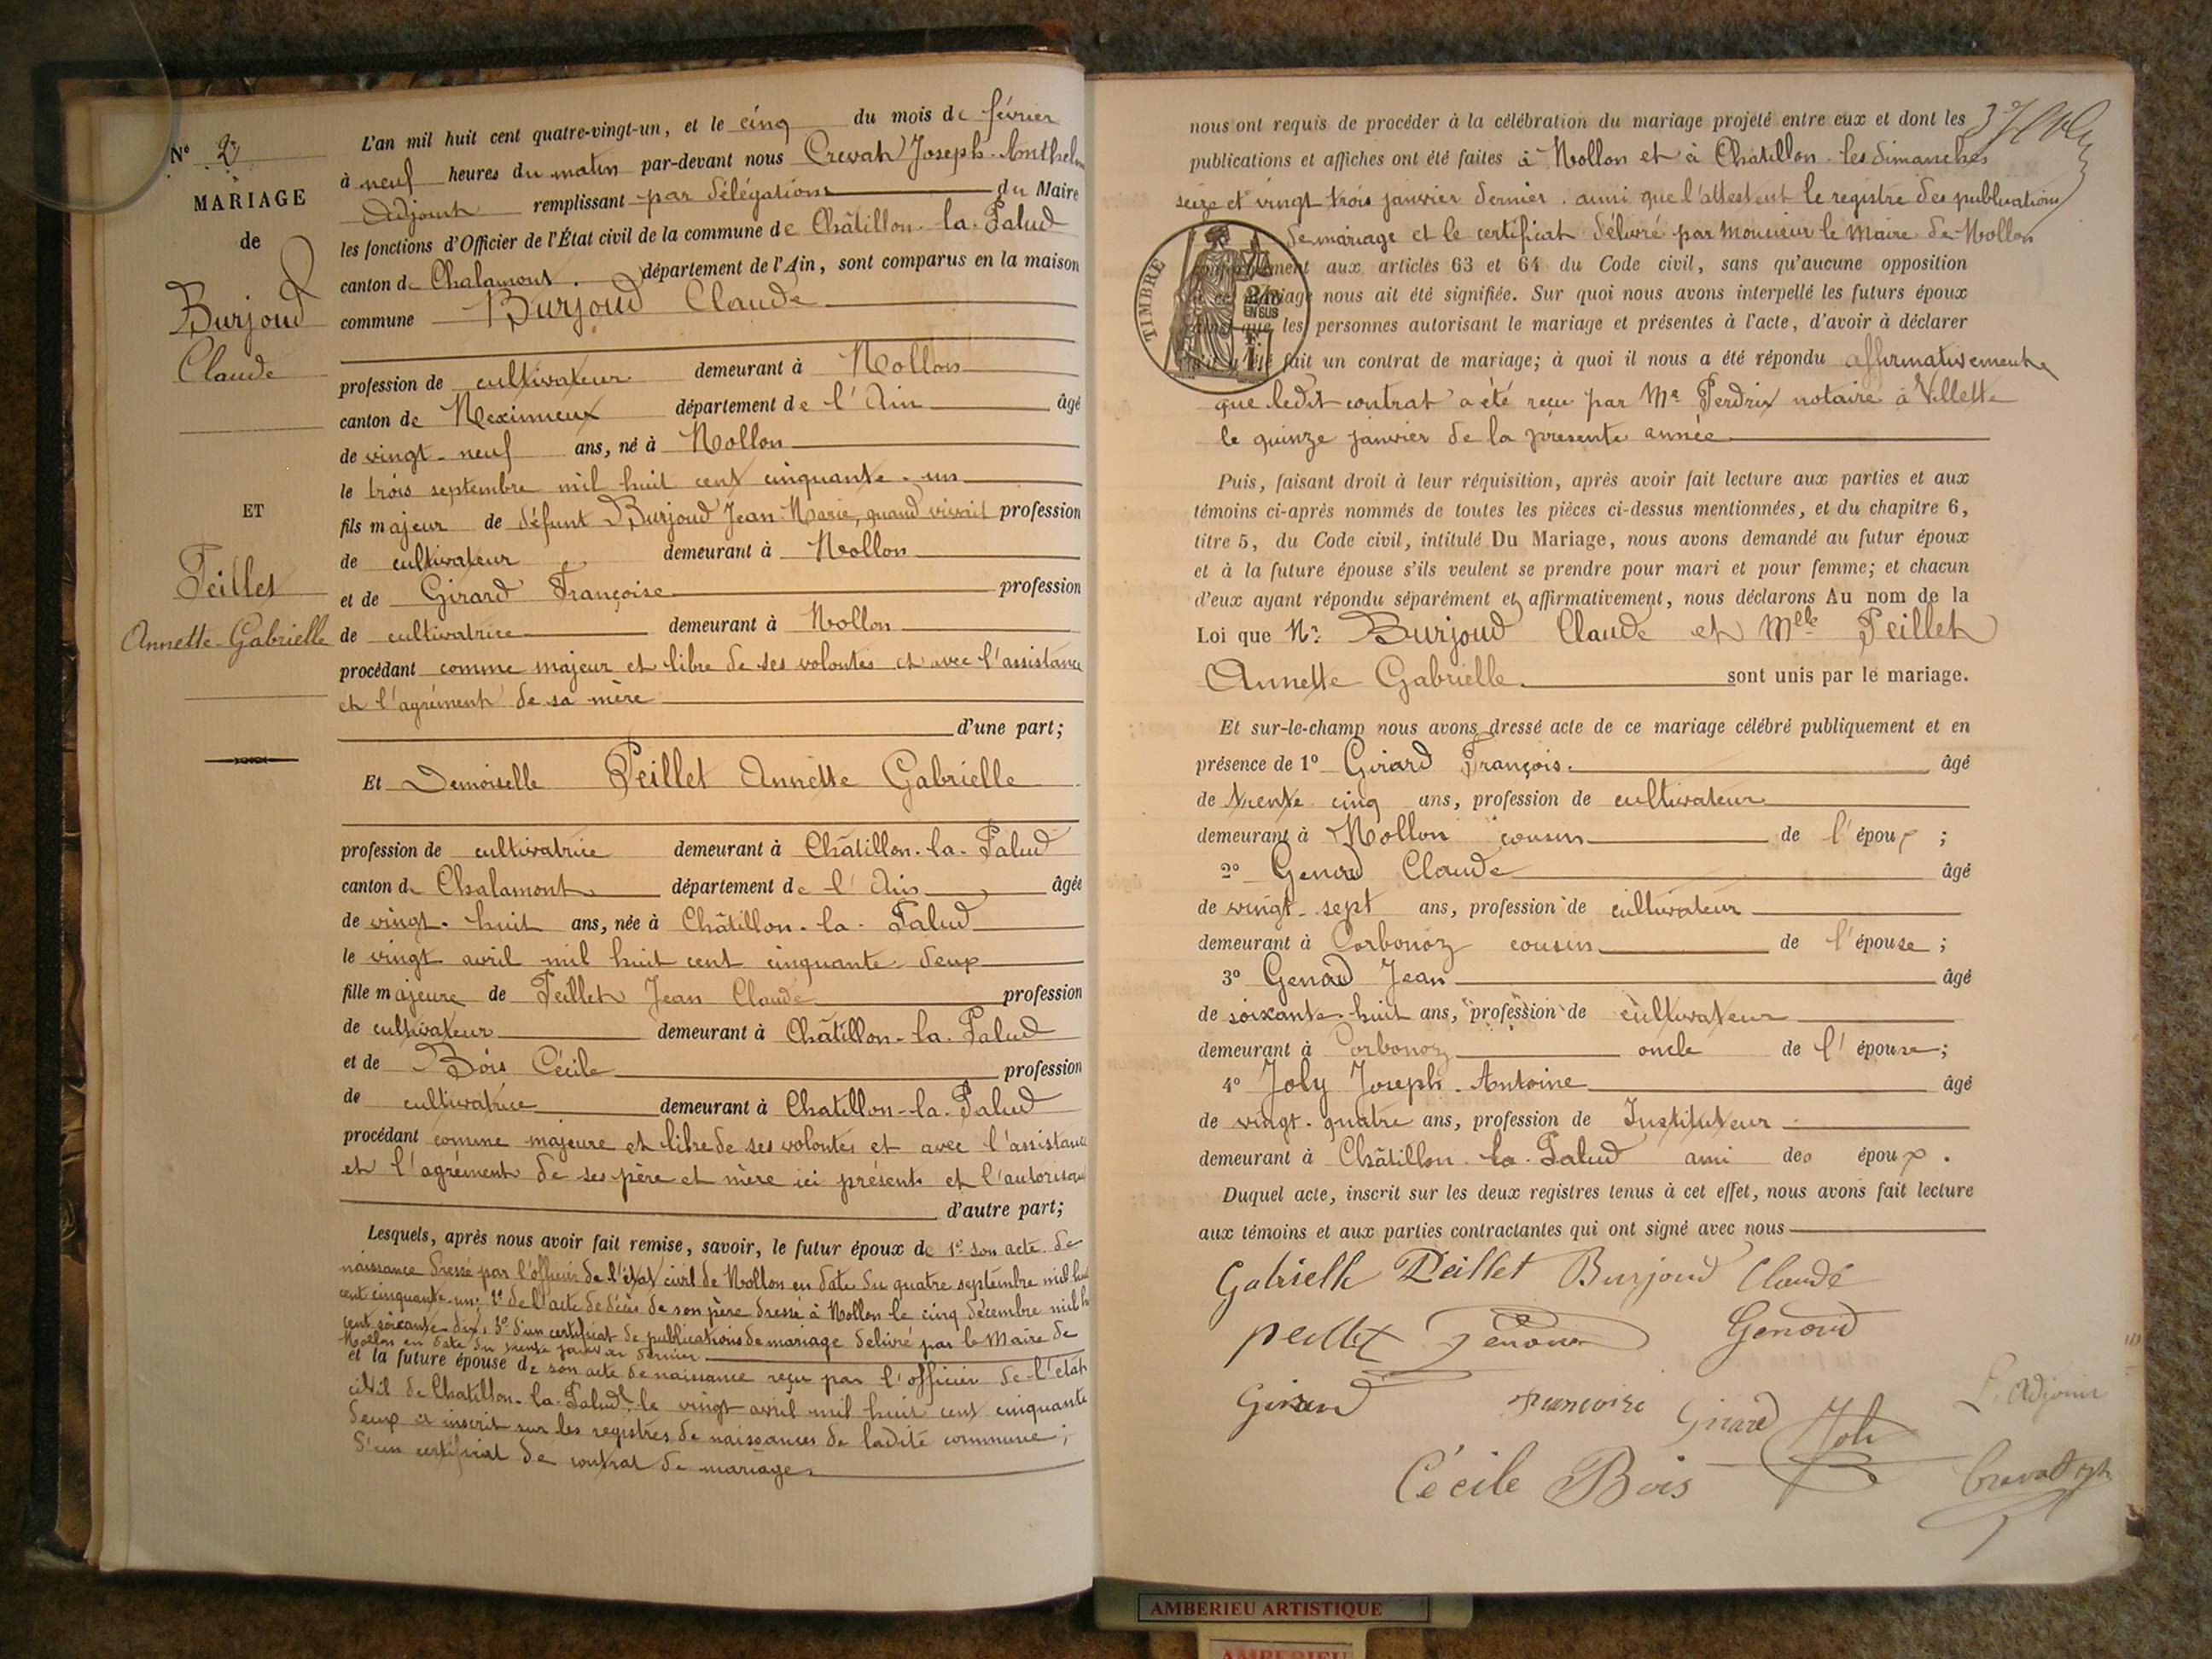 N° 2
MARIAGE
de
Burjoud
Claude
ET
Peillet
Annette-Gabrielle
L'an mil huit cent quatre-vingt-un, et le cinq du mois de février
à neuf heures du matin par-devant nous Crevat Joseph-Anthelm
Adjoint remplissant par délégation du Maire
les fonctions d'Officier de l'État civil de la commune de Châtillon-la-Palud
canton de Chalamont, département de l'Ain, sont comparus en la maison
commune Burjoud Claude
profession de cultivateur demeurant à Mollon
canton de Meximieux département de l'Ain âgé
de vingt-neuf ans, né à Mollon
le trois septembre mil huit cent cinquante-un
fils majeur de défunt Burjoud Jean-Marie, quand vivait profession
de cultivateur demeurant à Mollon
et de Girard Françoise profession
de cultivatrice demeurant à Mollon
procédant comme majeur et libre de ses volontés et avec l'assistance
et l'agrément de sa mère
d'une part;
Et Demoiselle Peillet Annette Gabrielle
profession de cultivatrice demeurant à Châtillon-la-Palud
canton de Chalamont département de l'Ain âgée
de vingt-huit ans, née à Châtillon-la-Palud
le vingt avril mil huit cent cinquante-deux
fille majeure de Peillet Jean Claude profession
de cultivateur demeurant à Châtillon-la-Palud
et de Bois Cécile profession
de cultivatrice demeurant à Chatillon-la-Palud
procédant comme majeure et libre de ses volontés et avec l'assistance
et l'agrément de ses père et mère ici présents et l'autorisant
d'autre part;
Lesquels, après nous avoir fait remise, savoir, le futur époux de 1° son acte de
naissance dressé par l'officier de l'état civil de Mollon en date du quatre septembre mil huit
cent cinquante-un; 2° de l'acte de décès de son père dressé à Mollon le cinq décembre mil h
cent soixante-dix; 3° d'un certificat de publications de mariage délivré par le Maire de
Mollon en date du trente janvier dernier
et la future épouse de son acte de naissance reçu par l'officier de l'état
civil de Chatillon-la-Palud le vingt avril mil huit cent cinquante
deux et inscrit sur les registres de naissances de ladite commune;
D'un certificat de contrat de mariage
nous ont requis de procéder à la célébration du mariage projeté entre eux et dont les
publications et affiches ont été faites à Mollon et à Châtillon les dimanches
seize et vingt-trois janvier dernier, ainsi que l'attestent le registre des publications
de mariage et le certificat délivré par Monsieur le Maire de Mollon
TIMBRE
2/10 EN SUS
aux articles 63 et 64 du Code civil, sans qu'aucune opposition
mariage nous ait été signifiée. Sur quoi nous avons interpellé les futurs époux
que les personnes autorisant le mariage et présentes à l'acte, d'avoir à déclarer
fait un contrat de mariage; à quoi il nous a été répondu affirmativement
que ledit contrat a été reçu par Me Perdrix notaire à Villette
le quinze janvier de la présente année
Puis, faisant droit à leur réquisition, après avoir fait lecture aux parties et aux
témoins ci-après nommés de toutes les pièces ci-dessus mentionnées, et du chapitre 6,
titre 5, du Code civil, intitulé Du Mariage, nous avons demandé au futur époux
et à la future épouse s'ils veulent se prendre pour mari et pour femme; et chacun
d'eux ayant répondu séparément et affirmativement, nous déclarons Au nom de la
Loi que Mr Burjoud Claude et Melle Peillet
Annette Gabrielle sont unis par le mariage.
Et sur-le-champ nous avons dressé acte de ce mariage célébré publiquement et en
présence de 1° Girard François âgé
de trente-cinq ans, profession de cultivateur
demeurant à Mollon cousin de l'époux;
2° Genoud Claude âgé
de vingt-sept ans, profession de cultivateur
demeurant à Corbonoz cousin de l'épouse;
3° Genoud Jean âgé
de soixante-huit ans, profession de cultivateur
demeurant à Corbonoz oncle de l'épouse;
4° Joly Joseph-Antoine âgé
de vingt-quatre ans, profession de Instituteur
demeurant à Châtillon-la-Palud ami des époux.
Duquel acte, inscrit sur les deux registres tenus à cet effet, nous avons fait lecture
aux témoins et aux parties contractantes qui ont signé avec nous
Gabrielle Peillet Burjoud Claude
peillet Genoud Genoud
Girard Françoise Girard Joly L'Adjoint
Cécile Bois Crevat Jph
AMBERIEU ARTISTIQUE
AMBERIEU